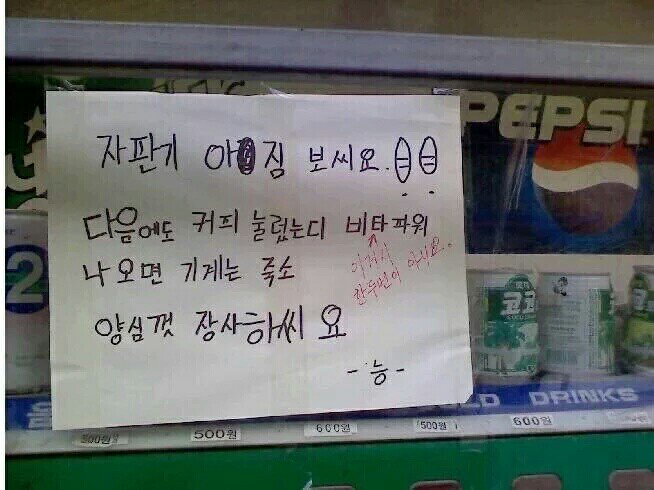 PEPSI
자판기 아짐 보씨요.
다음에도 커피 눌렀는디 비타파워
나오면 기계는 죽소
양심껏 장사하씨요
한두번이 아니요.
-능-
2
코코
COLD DRINKS
500원
500원
600원
500원
600원